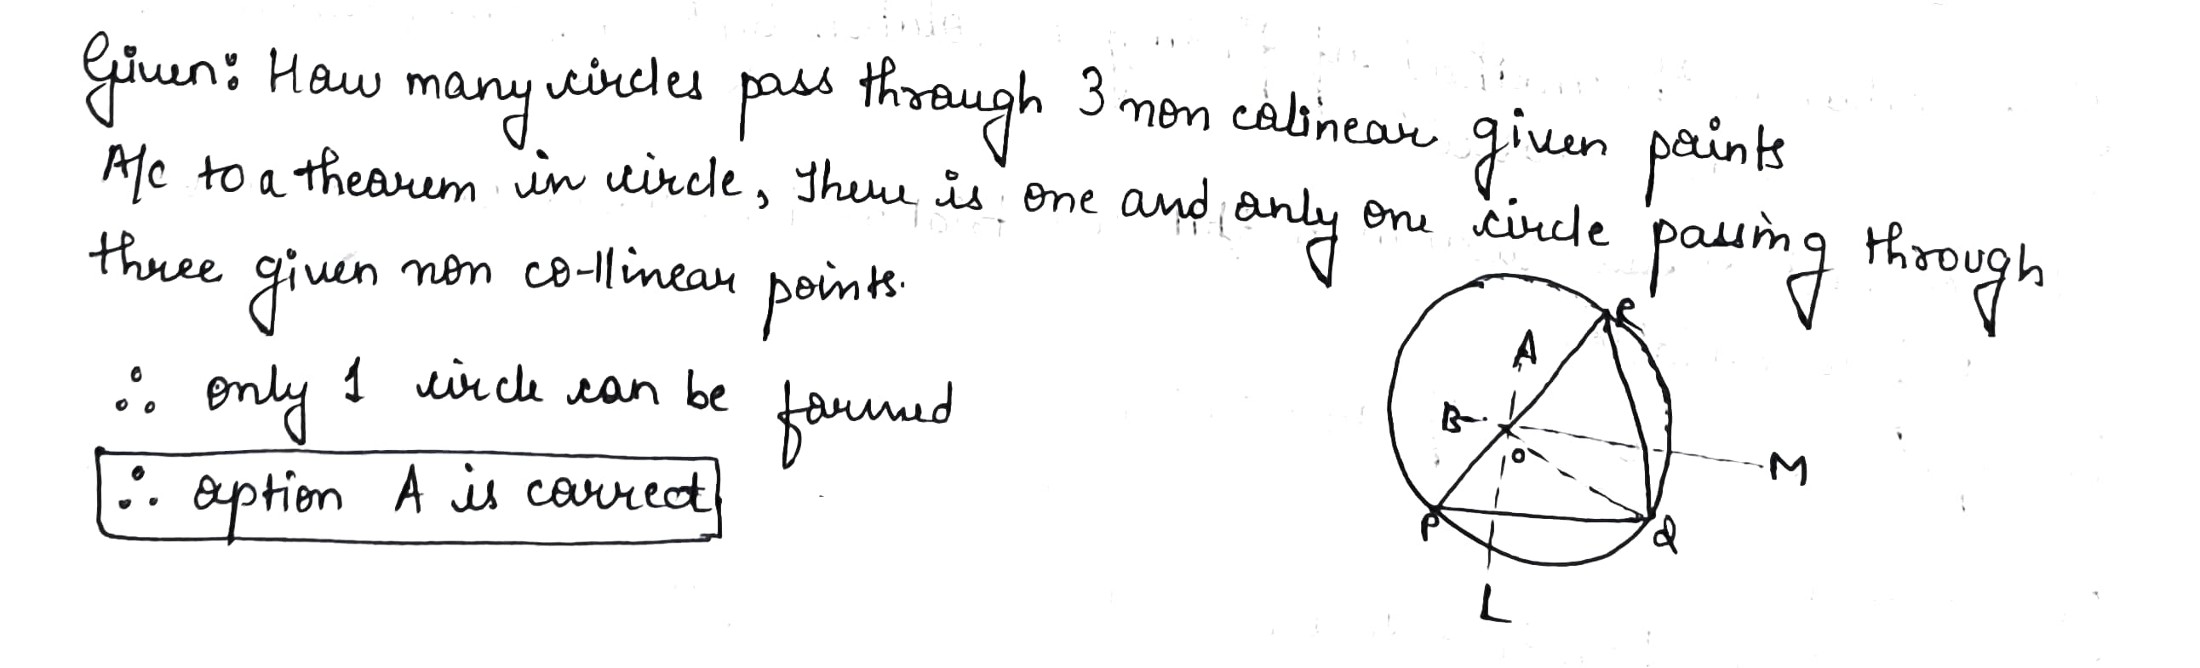 Given: How many circles pass through 3 non colinear given points
A/c to a thearem in circle, There is one and only one circle passing through
three given non co-llinear points.
∴ only 1 circle can be formed
∴ option A is correct
R
A
B
O
M
P
Q
L